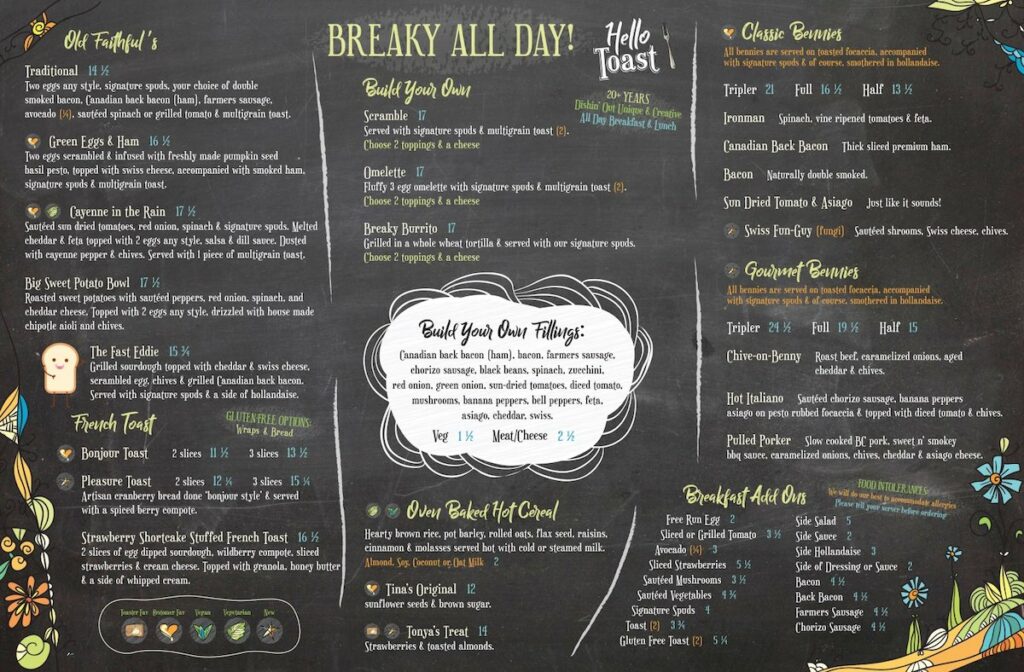 Old Faithful's
Traditional 14 ½
Two eggs any style, signature spuds, your choice of double
smoked bacon, Canadian back bacon (ham), farmers sausage,
avocado (¼), sautéed spinach or grilled tomato & multigrain toast.
Green Eggs & Ham 16 ½
Two eggs scrambled & infused with freshly made pumpkin seed
basil pesto, topped with swiss cheese, accompanied with smoked ham,
signature spuds & multigrain toast.
Cayenne in the Rain 17 ½
Sautéed sun dried tomatoes, red onion, spinach & signature spuds. Melted
cheddar & feta topped with 2 eggs any style, salsa & dill sauce. Dusted
with cayenne pepper & chives. Served with 1 piece of multigrain toast.
Big Sweet Potato Bowl 17 ½
Roasted sweet potatoes with sautéed peppers, red onion, spinach, and
cheddar cheese, Topped with 2 eggs any style, drizzled with house made
chipotle aioli and chives.
The Fast Eddie 15 ¾
Grilled sourdough topped with cheddar & swiss cheese,
scrambled egg, chives & grilled Canadian back bacon.
Served with signature spuds & a side of hollandaise.
French Toast
GLUTEN-FREE OPTIONS:
Wraps & Bread
Bonjour Toast 2 slices 11 ½ 3 slices 13 ½
Pleasure Toast 2 slices 12 ¼ 3 slices 15 ¼
Artisan cranberry bread done 'bonjour style' & served
with a spiced berry compote.
Strawberry Shortcake Stuffed French Toast 16 ½
2 slices of egg dipped sourdough, wildberry compote, sliced
strawberries & cream cheese. Topped with granola, honey butter
& a side of whipped cream.
Toaster Fav Restower Fav Vegan Vegetarian New
BREAKY ALL DAY!
Hello
Toast
20+ YEARS
Dishin' Out Unique & Creative
All Day Breakfast & Lunch
Build Your Own
Scramble 17
Served with signature spuds & multigrain toast (2).
Choose 2 toppings & a cheese
Omelette 17
Fluffy 3 egg omelette with signature spuds & multigrain toast (2).
Choose 2 toppings & a cheese
Breaky Burrito 17
Grilled in a whole wheat tortilla & served with our signature spuds.
Choose 2 toppings & a cheese
Build Your Own Fillings:
Canadian back bacon (ham), bacon, farmers sausage,
chorizo sausage, black beans, spinach, zucchini,
red onion, green onion, sun-dried tomatoes, diced tomato,
mushrooms, banana peppers, bell peppers, feta,
asiago, cheddar, swiss.
Veg 1 ½ Meat/Cheese 2 ½
Oven Baked Hot Cereal
Hearty brown rice, pot barley, rolled oats, flax seed, raisins,
cinnamon & molasses served hot with cold or steamed milk.
Almond, Soy, Coconut or Oat Milk 2
Tina's Original 12
sunflower seeds & brown sugar.
Tonya's Treat 14
Strawberries & toasted almonds.
Classic Bennies
All bennies are served on toasted focaccia, accompanied
with signature spuds & of course, smothered in hollandaise.
Tripler 21 Full 16 ½ Half 13 ½
Ironman Spinach, vine ripened tomatoes & feta.
Canadian Back Bacon Thick sliced premium ham.
Bacon Naturally double smoked.
Sun Dried Tomato & Asiago Just like it sounds!
Swiss Fun-Guy (fungi) Sautéed shrooms, Swiss cheese, chives.
Gourmet Bennies
All bennies are served on toasted focaccia, accompanied
with signature spuds & of course, smothered in hollandaise.
Tripler 24 ½ Full 19 ½ Half 15
Chive-on-Benny Roast beef, caramelized onions, aged
cheddar & chives.
Hot Italiano Sautéed chorizo sausage, banana peppers
asiago on pesto rubbed focaccia & topped with diced tomato & chives.
Pulled Porker Slow cooked BC pork, sweet n' smokey
bbq sauce, caramelized onions, chives, cheddar & asiago cheese.
Breakfast Add Ons
FOOD INTOLERANCES:
We will do our best to accommodate allergies
Please tell your server before ordering
Free Run Egg 2
Sliced or Grilled Tomato 3 ½
Avocado (¼) 3
Sliced Strawberries 5 ½
Sautéed Mushrooms 3 ½
Sautéed Vegetables 4 ¾
Signature Spuds 4
Toast (2) 3 ¾
Gluten Free Toast (2) 5 ¼
Side Salad 5
Side Sauce 2
Side Hollandaise 3
Side of Dressing or Sauce 2
Bacon 4 ½
Back Bacon 4 ½
Farmers Sausage 4 ½
Chorizo Sausage 4 ½